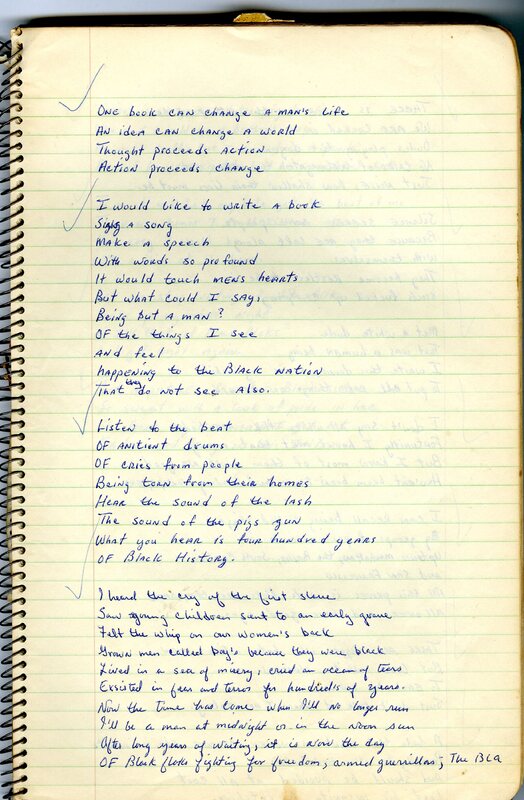 ONE book CAN change A MAN'S Life
AN idea CAN change A World
Thought proceeds Action
Action proceeds change
I would like to write a book
Sing a song
Make a speech
With words so profound
It would touch MENS hearts
But what could I say,
Being but a man?
OF the things I see
and feel
happening to the Black Nation
That they do not see Also.
Listen to the beat
OF ANItient drums
OF cries from people
Being torn from their homes
Hear the sound of the lash
The sound of the pigs gun
What you hear is four hundred years
OF Black History.
I heard the cry of the first slave
Saw young children sent to an early grave
Felt the whip on our women's back
Grown men called boy's because they were black
Lived in a sea of misery, cried an ocean of tears
Exsisted in fear and terror for hundred's of years.
Now the time has come when I'll no longer run
I'll be a man at midnight or in the noon sun
After long years of waiting, it is now the day
OF Black folks fighting for freedom; armed guerrillas; The BLA